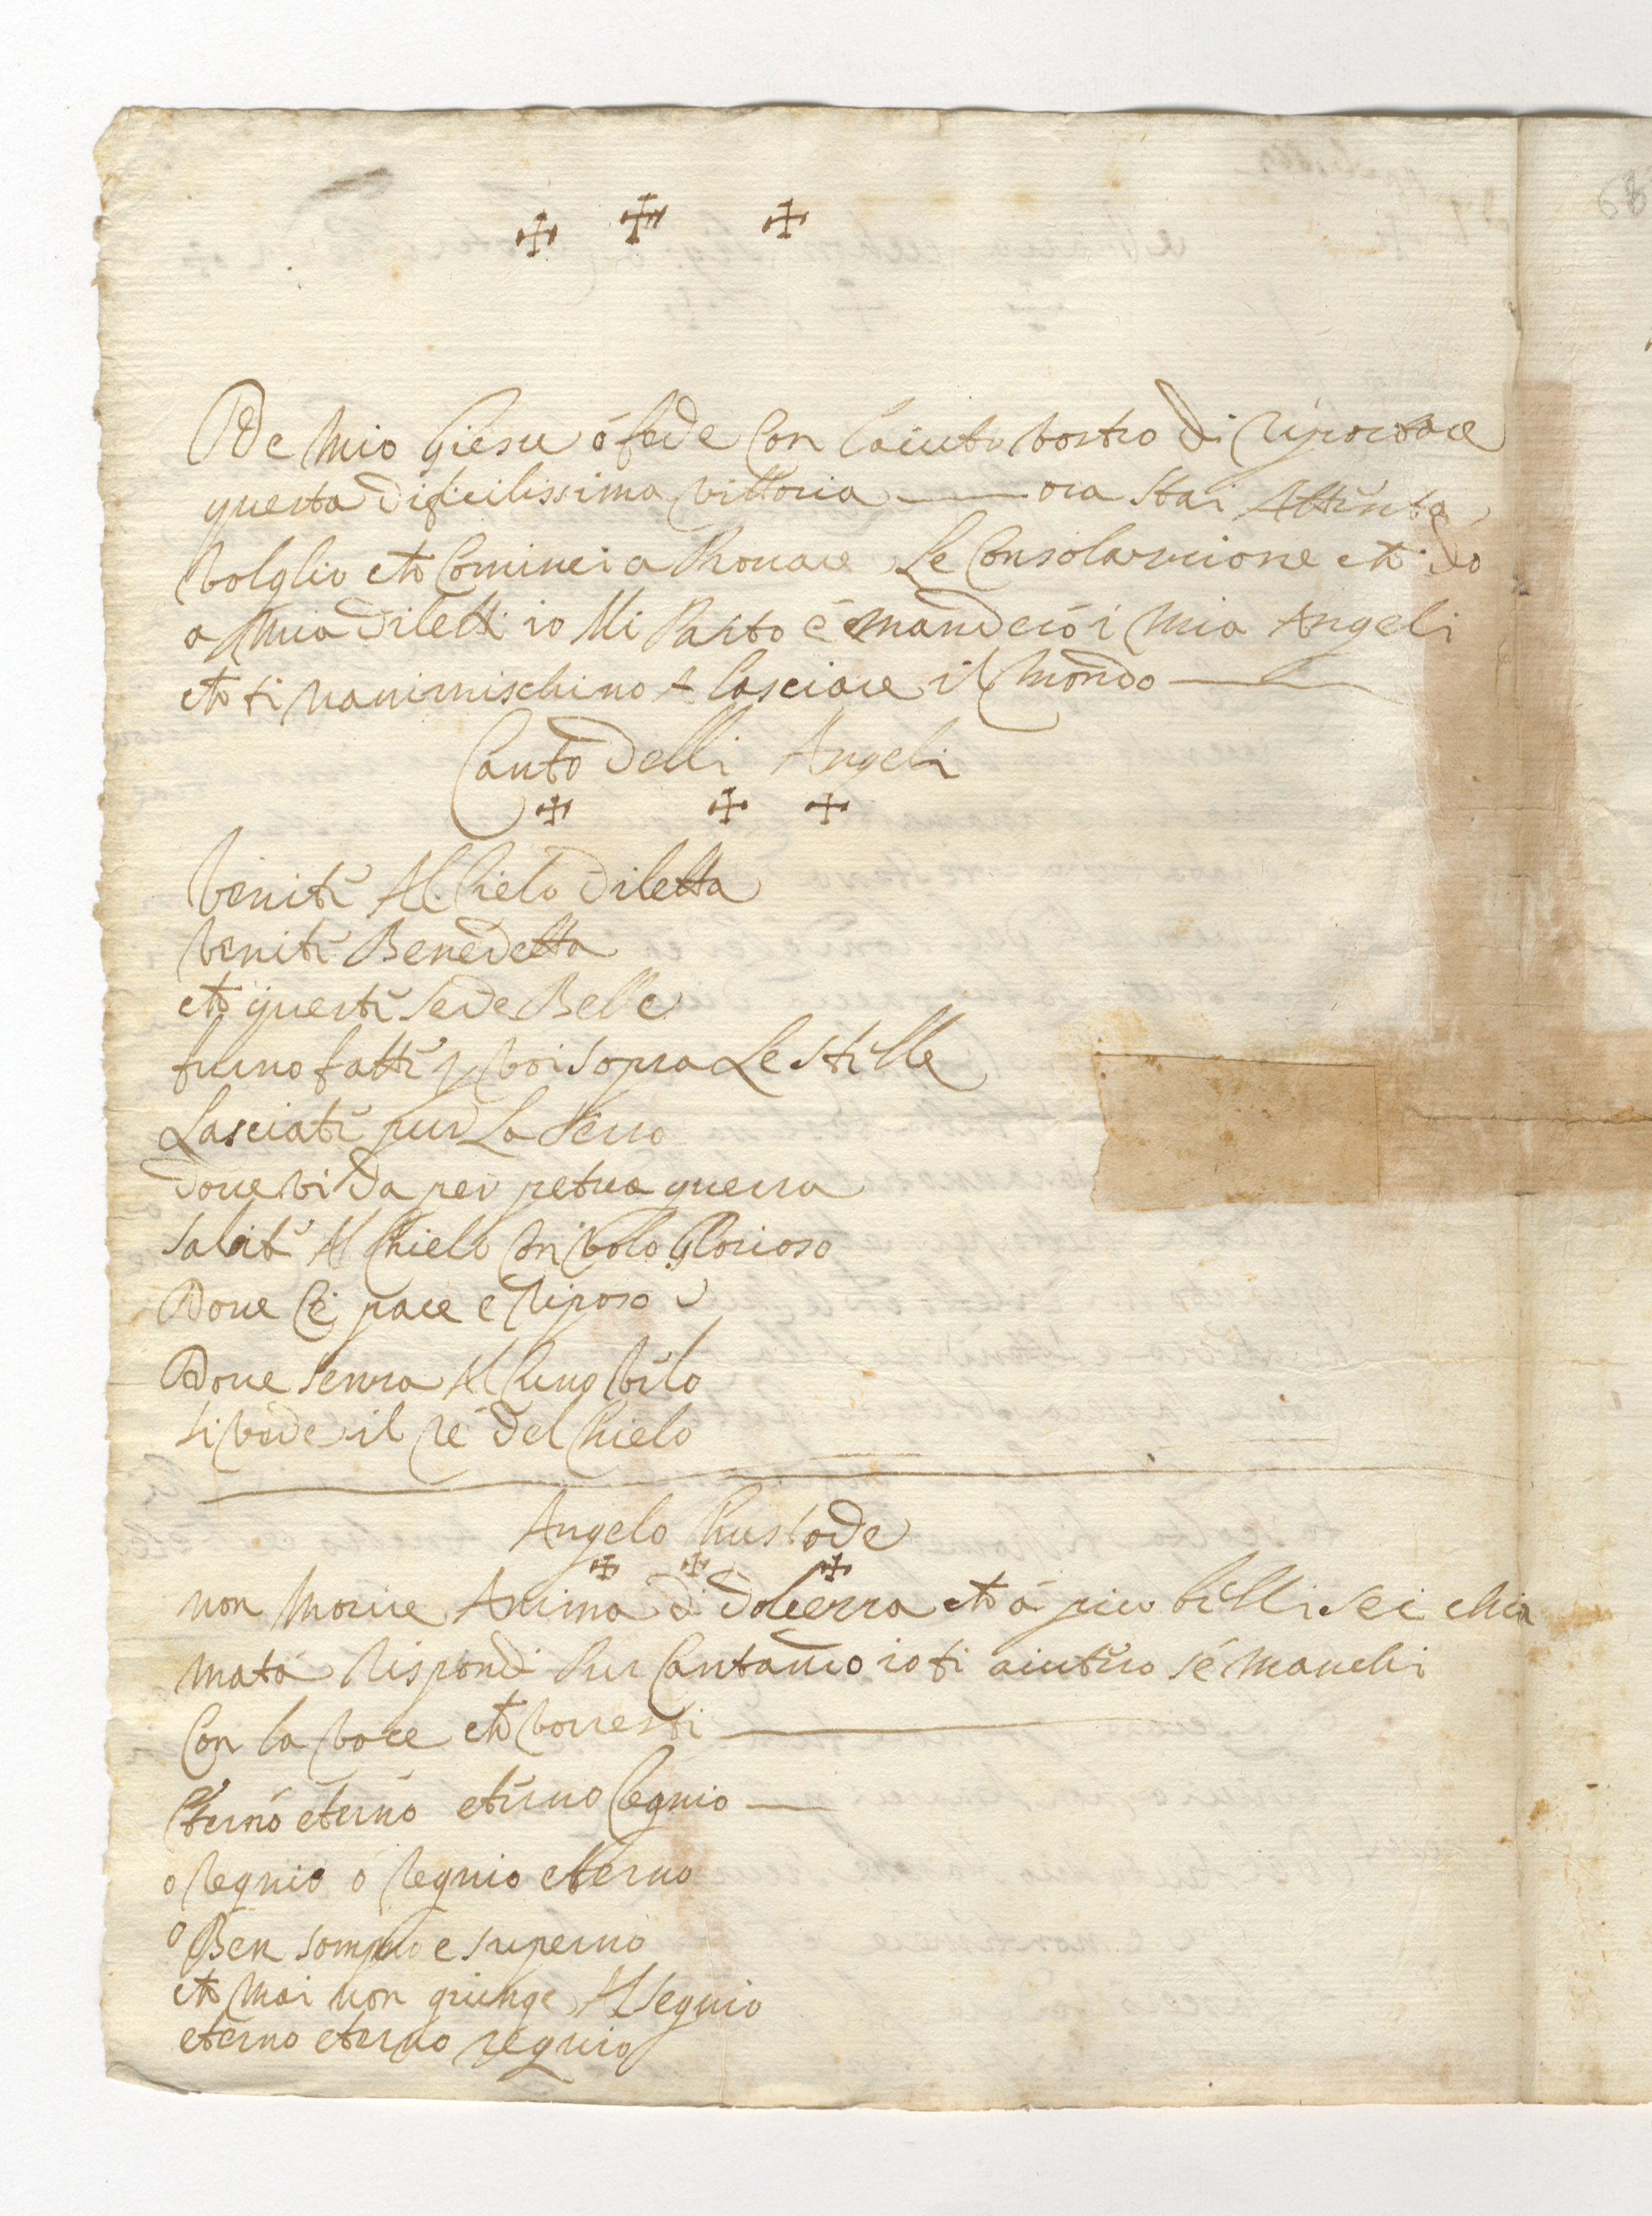 De mio Giesu ó fede Con laiuto vostro di riportare
questa dificilissima vittoria ora stai Attenta
volglio che Cominci a Provare Le Consolatione che do
a mia diletti io Mi Parto é manderó i mia Angeli
che ti a lasciare il mondo
Canto delli Angeli
venite Al Cielo diletta
venite Benedetta
che queste sede Belle
furno fatte p voi sopra Le stelle
Lasciate pur La Terra
dove vi da per petua guerra
salite Al Chielo in volo glorioso
Dove Cé pace e riposo
Dove senza Al Cuno velo
si vede il ré del Chielo
Angelo Chustode
non morire Anima di dolcezza che á piu belli sei chia
mata rispondi Pur Cantando io ti aiutero sé manchi
Con la voce che vorresti
eterno eterno eterno regnio
o regnio o regnio etterno
o Ben sompio e superno
che mai non giunge Al segnio
eterno eterno regnio